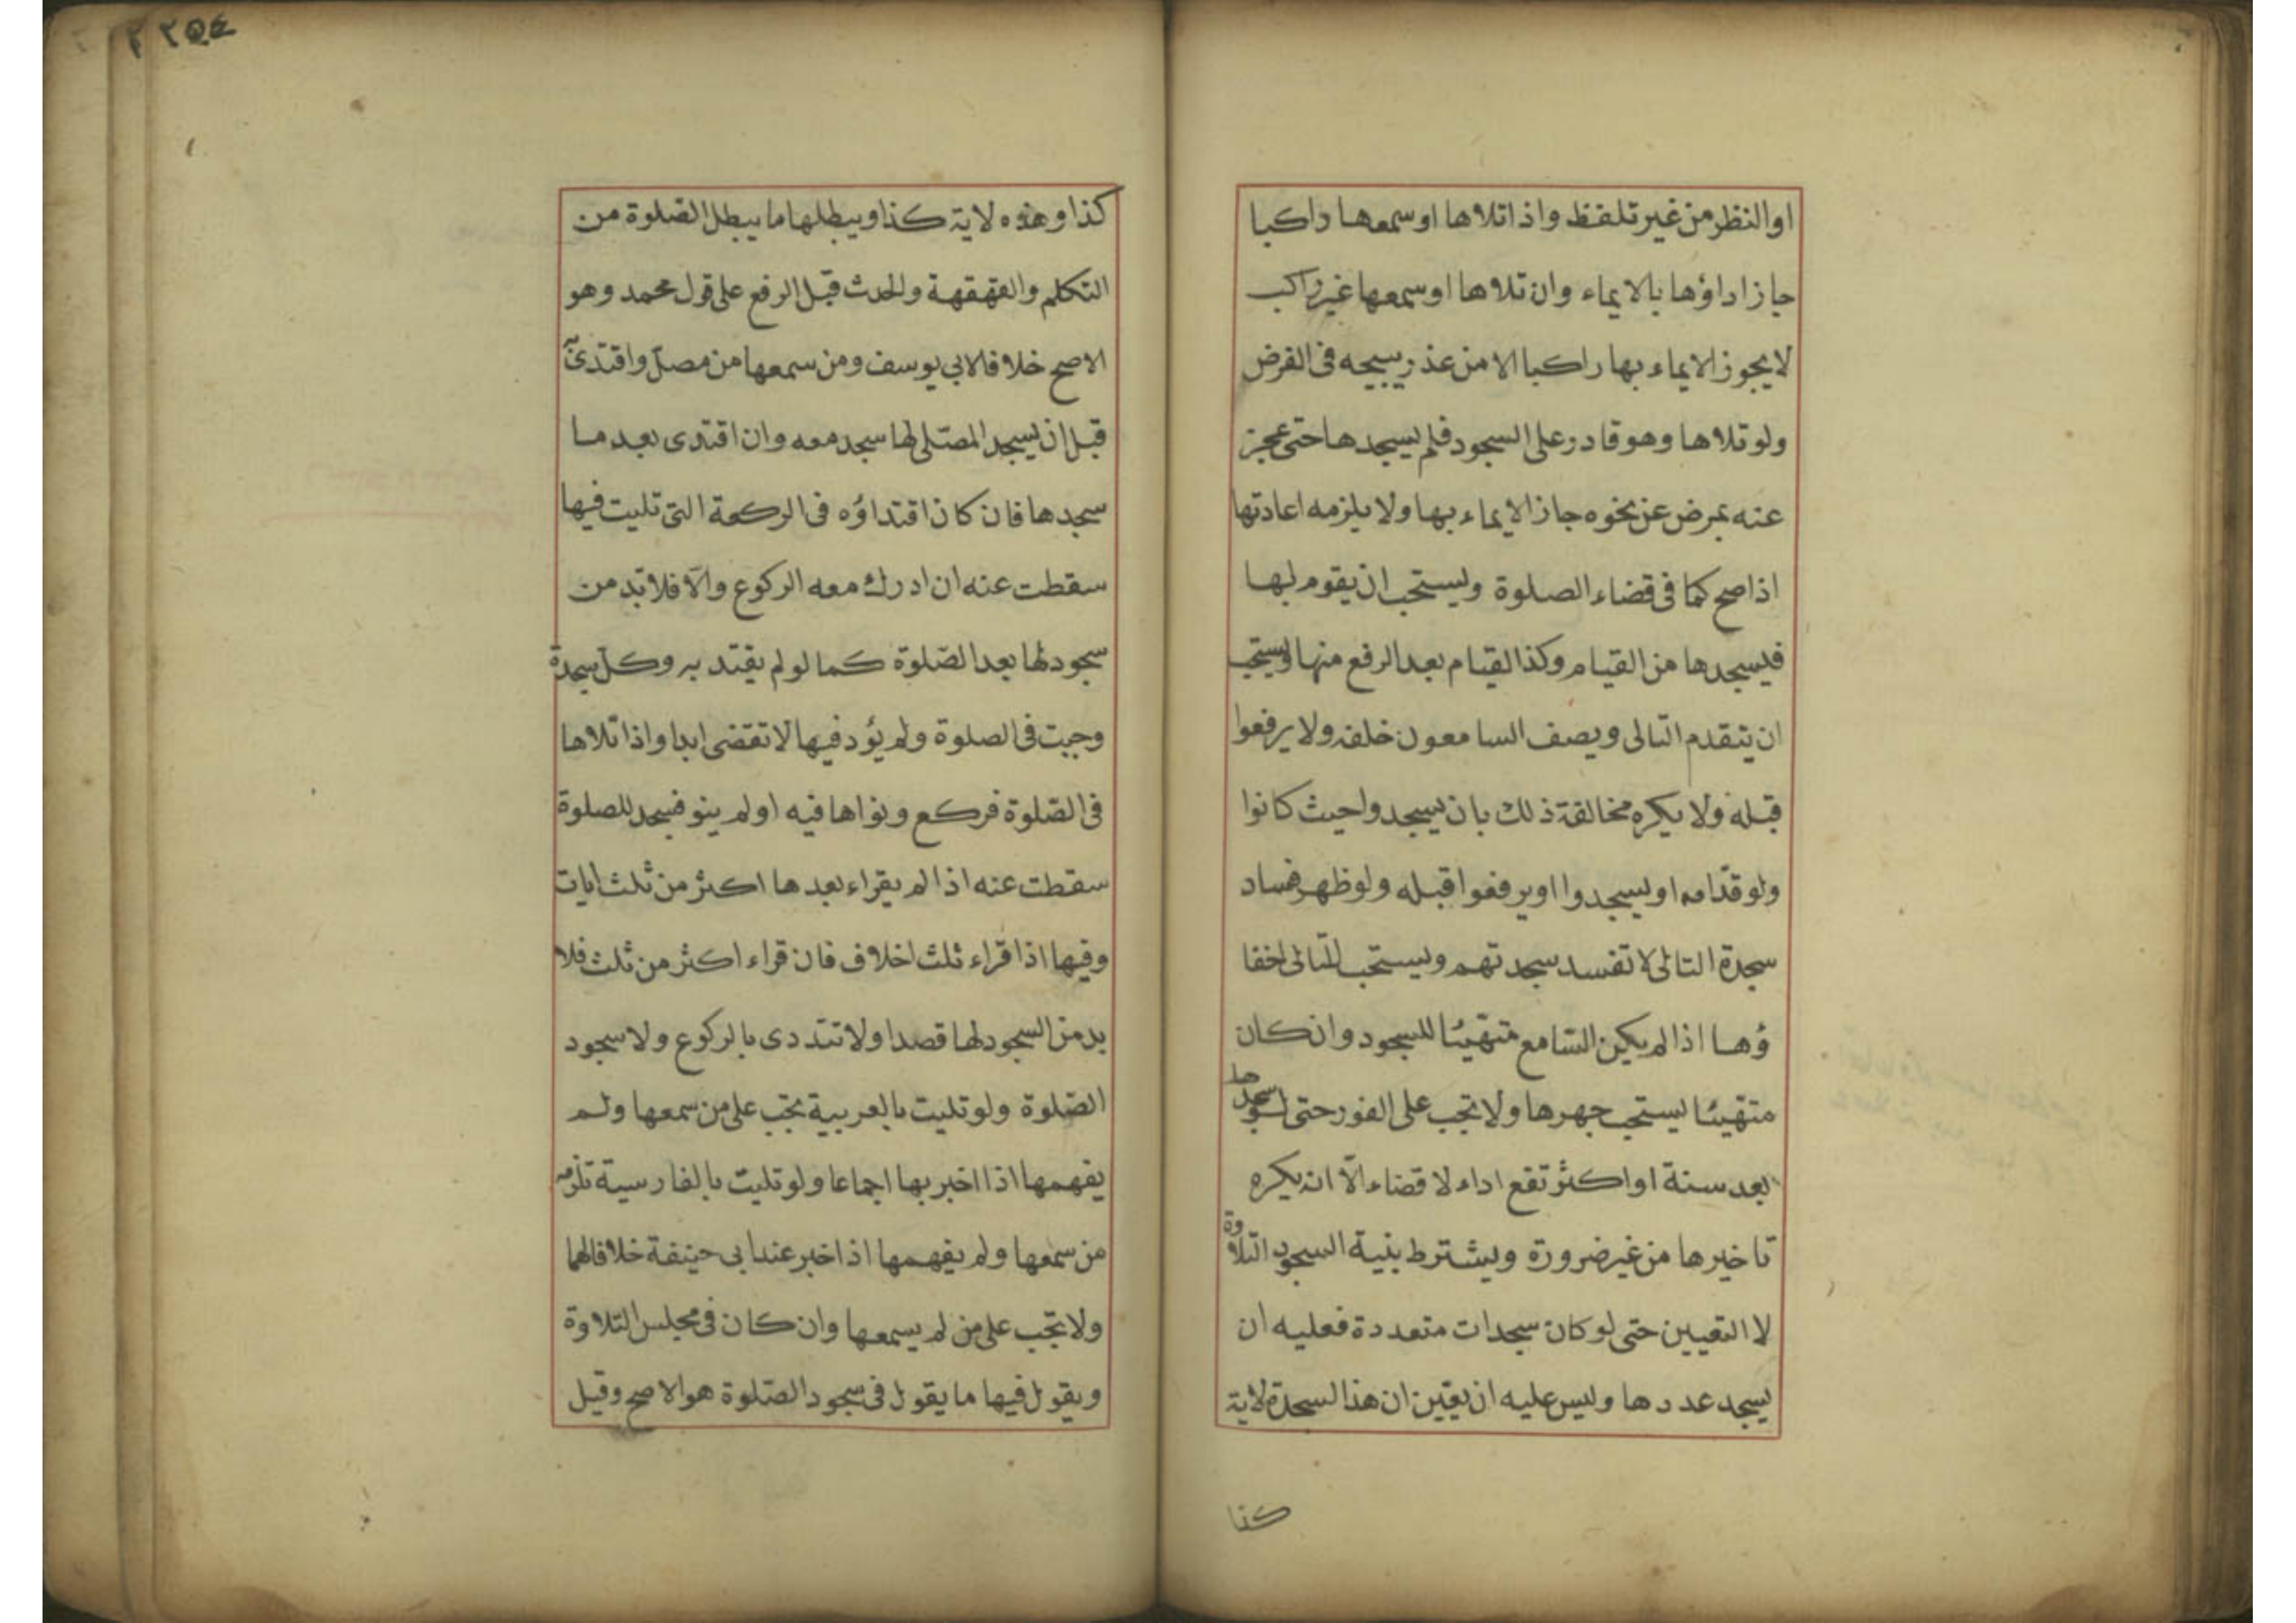 او النظر من غير تلفظ واذا تلاها او سمعها راكبا
جاز اداؤها بالايماء وان تلاها او سمعها غير راكب
لا يجوز الايماء بها راكبا الا من عذر يبيحه فى الفرض
ولو تلاها وهو قادر على السجود فلم يسجدها حتى عجز
عنه بمرض عن نحوه جاز الايماء بها ولا يلزمه اعادتها
اذا صح كما فى قضاء الصلوة ويستحب ان يقوم لها
فيسجدها من القيام وكذا القيام بعد الرفع منها ويستحب
ان يتقدم التالى ويصف السامعون خلفه ولا يرفعوا
قبله ولا يكره مخالفة ذلك بان يسجدوا حيث كانوا
ولو قدّامه او يسجدوا او يرفعوا قبله ولو ظهر فساد
سجدة التالى لا تفسد سجدتهم ويستحب للتالى اخفا
ؤها اذا لم يكن السّامع متهيّئا للسجود وان كان
متهيئا يستحب جهرها ولا تجب على الفور حتى لو سجدها
بعد سنة او اكثر تقع اداء لا قضاء الّا انه يكره
تاخيرها من غير ضرورة ويشترط بنية السجود التلاوة
لا التعيين حتى لو كان سجدات متعددة فعليه ان
يسجد عددها وليس عليه ان يعين ان هذا السجدة لاية
كذا
٢٥٤
كذا وهذه لاية كذا ويبطلها ما يبطل الصّلوة من
التكلم والقهقهة والحدث قبل الرفع على قول محمد وهو
الاصح خلافا لابى يوسف ومن سمعها من مصلّ واقتدى به
قبل ان يسجد المصّلى لها سجد معه وان اقتدى بعد ما
سجدها فان كان اقتداؤه فى الركعة التى تليت فيها
سقطت عنه ان ادرك معه الركوع والّا فلا بد من
سجود لها بعد الصّلوة كما لو لم يقتد به وكلّ سجدة
وجبت فى الصلوة ولم يؤد فيها لا تقضى ابدا واذا تلاها
فى الصّلوة فركع ونواها فيه او لم ينو فسجد للصلوة
سقطت عنه اذا لم يقراء بعدها اكثر من ثلث ايات
وفيها اذا قراء ثلث اخلاف فان قراء اكثر من ثلث فلا
بد من السجود لها قصدا ولا تتددى بالركوع ولا سجود
الصّلوة ولو تليت بالعربية تجب على من سمعها ولم
يفهمها اذا اخبر بها اجماعا ولو تليت بالفارسية تلزم
من سمعها ولم يفهمها اذا اخبر عند ابى حنيفة خلافا لهما
ولا تجب على من لم يسمعها وان كان فى مجلس التلاوة
ويقول فيها ما يقول فى سجود الصّلوة هو الاصح وقيل